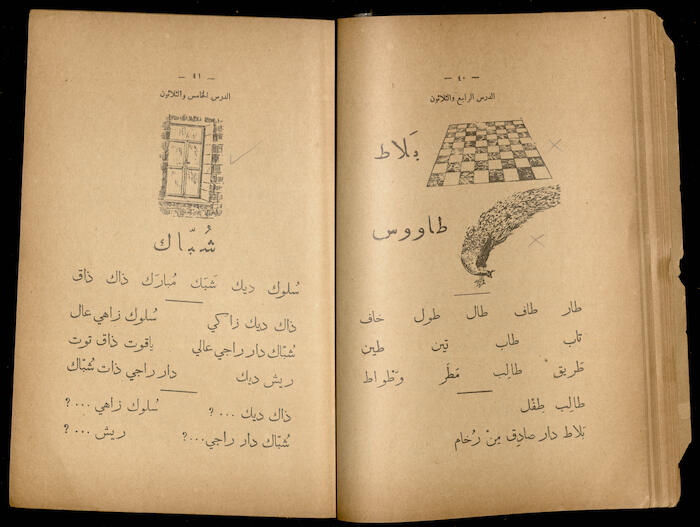 — ٤٠ —
الدرس الرابع والثلاثون
بَلاط
طاووس
طار طاف طال طول خاف
تاب طاب تين طين
طَريق طالِب مَطَر وَطْواط
طالِب طِفْل
بَلاط دار صادِق مِنْ رُخام
— ٤١ —
الدرس الخامس والثلاثون
شُبّاك
سُلوك ديك شَبَك مُبارَك ذاك ذاق
ذاك ديك زاكي سُلوك زاهي عال
شُبّاك دار راجي عالي ياقوت ذاق توت
ريش ديك دار راجي ذات شُبّاك
ذاك ديك ... ؟ سُلوك زاهي ... ؟
شُبّاك دار راجي...؟ ريش ... ؟